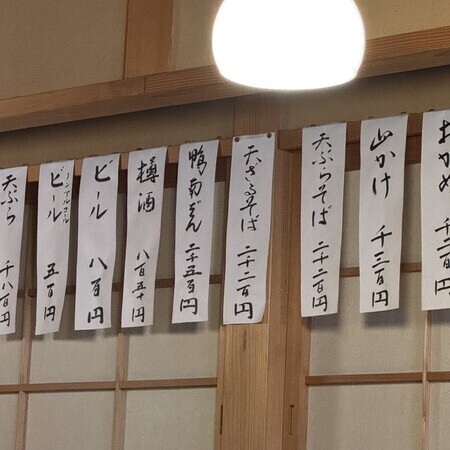 おかめ 千二百円
山かけ 千三百円
天ぷらそば 二千二百円
天ざるそば 二千二百円
鴨南ばん 二千五百円
樽酒 八百五十円
ビール 八百円
ノンアルコール
ビール 五百円
天ぷら 千八百円